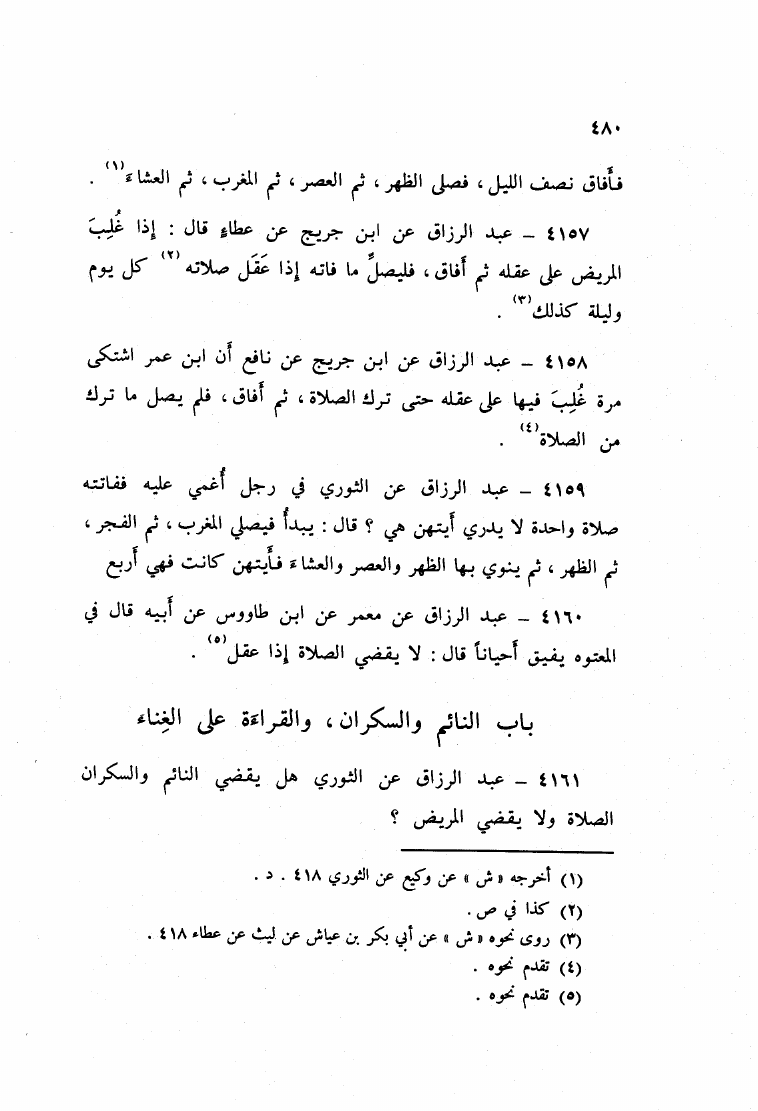 ٤٨٠
فأَفاق نصف الليل ، فصلى الظهر ، ثم العصر ، ثم المغرب ، ثم العشاءَ(١) .
٤١٥٧ – عبد الرزاق عن ابن جريج عن عطاءٍ قال : إذا غُلِبَ
المريض على عقله ثم أَفاق ، فليصلِّ ما فاته إذا عَقَل صلاته(٢) كل يوم
وليلة كذلك(٣) .
٤١٥٨ – عبد الرزاق عن ابن جريج عن نافع أَن ابن عمر اشتكى
مرة غُلِبَ فيها على عقله حتى ترك الصلاة ، ثم أَفاق ، فلم يصل ما ترك
من الصلاة(٤) .
٤١٥٩ – عبد الرزاق عن الثوري في رجل أُغمي عليه ففاتته
صلاة واحدة لا يدري أَيتهن هي ؟ قال : يبدأُ فيصلي المغرب ، ثم الفجر ،
ثم الظهر ، ثم ينوي بها الظهر والعصر والعشاءَ فأَيتهن كانت فهي أَربع
٤١٦٠ – عبد الرزاق عن معمر عن ابن طاووس عن أَبيه قال في
المعتوه يفيق أَحياناً قال : لا يقضي الصلاة إذا عقل(٥) .
باب النائم والسكران ، والقراءَة على الغِناء
٤١٦١ – عبد الرزاق عن الثوري هل يقضي النائم والسكران
الصلاة ولا يقضي المريض ؟
(١) أخرجه « ش » عن وكيع عن الثوري ٤١٨ . د .
(٢) كذا في ص .
(٣) روى نحوه « ش » عن أبي بكر بن عياش عن ليث عن عطاء ٤١٨ .
(٤) تقدم نحوه .
(٥) تقدم نحوه .